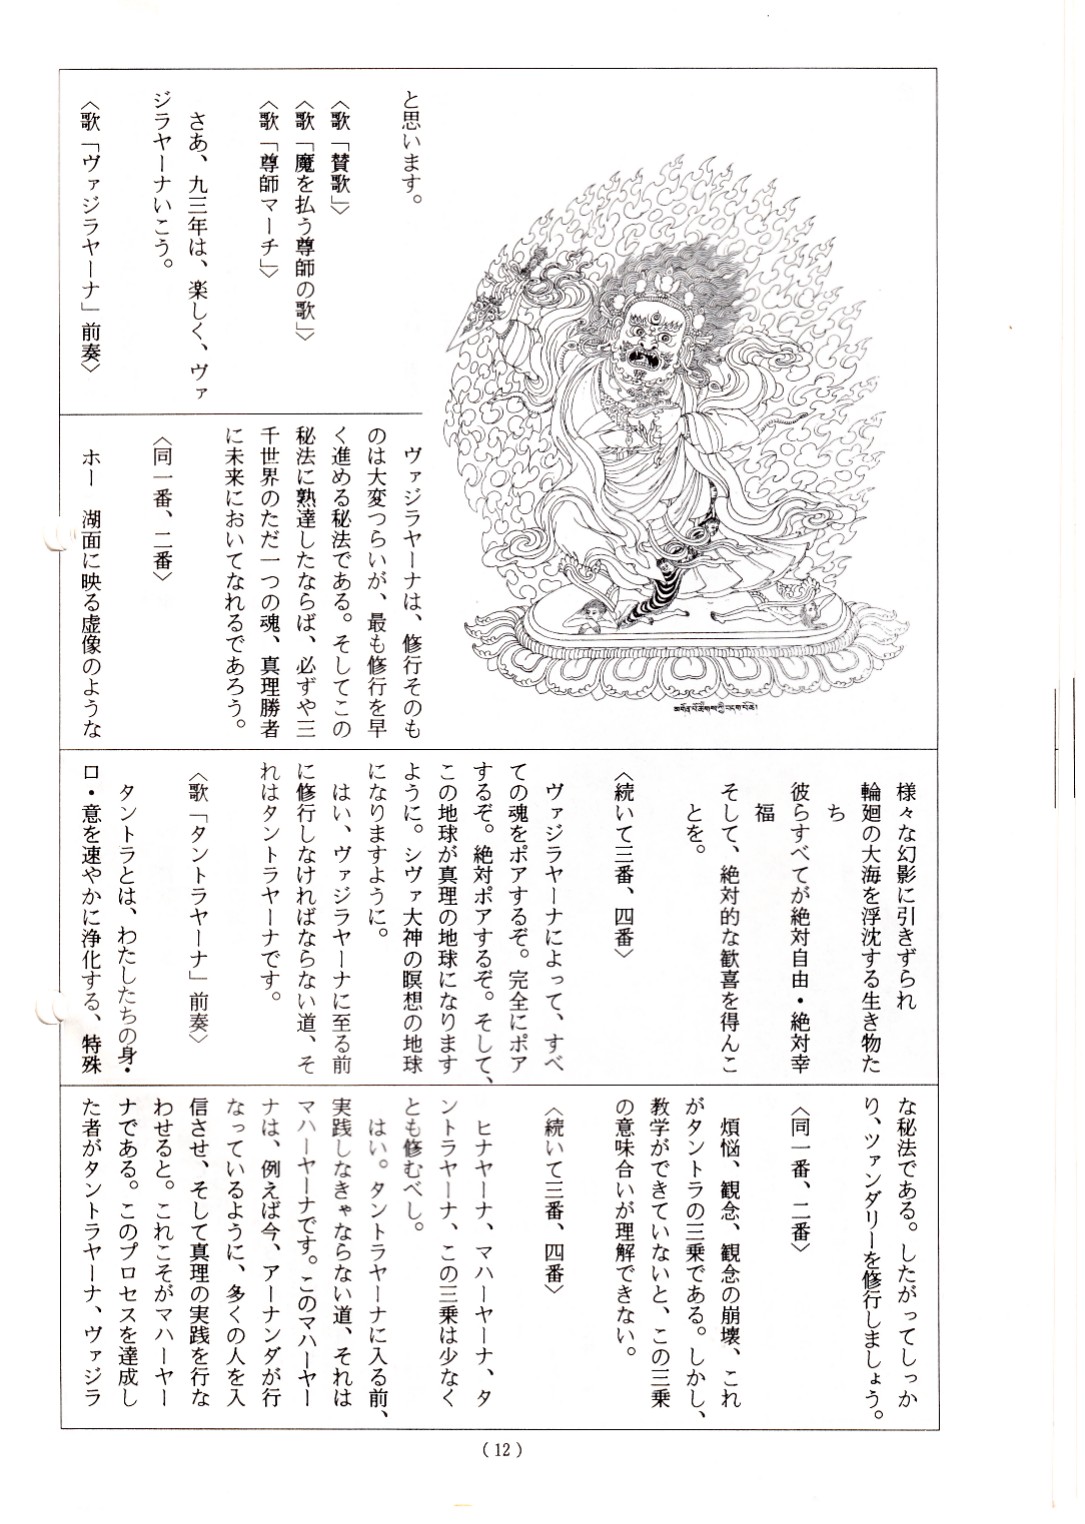 と思います。
〈歌「賛歌」〉
〈歌「魔を払う尊師の歌」〉
〈歌「尊師マーチ」〉
さあ、九三年は、楽しく、ヴァ
ジラヤーナいこう。
〈歌「ヴァジラヤーナ」前奏〉
ヴァジラヤーナは、修行そのも
のは大変つらいが、最も修行を早
く進める秘法である。そしてこの
秘法に熟達したならば、必ずや三
千世界のただ一つの魂、真理勝者
に未来においてなれるであろう。
〈同一番、二番〉
ホー　湖面に映る虚像のような
様々な幻影に引きずられ
輪廻の大海を浮沈する生き物た
ち
彼らすべてが絶対自由・絶対幸
福
そして、絶対的な歓喜を得んこ
とを。
〈続いて三番、四番〉
ヴァジラヤーナによって、すべ
ての魂をポアするぞ。完全にポア
するぞ。絶対ポアするぞ。そして、
この地球が真理の地球になります
ように。シヴァ大神の瞑想の地球
になりますように。
はい、ヴァジラヤーナに至る前
に修行しなければならない道、そ
れはタントラヤーナです。
〈歌「タントラヤーナ」前奏〉
タントラとは、わたしたちの身・
口・意を速やかに浄化する、特殊
な秘法である。したがってしっか
り、ツァンダリーを修行しましょう。
〈同一番、二番〉
煩悩、観念、観念の崩壊、これ
がタントラの三乗である。しかし、
教学ができていないと、この三乗
の意味合いが理解できない。
〈続いて三番、四番〉
ヒナヤーナ、マハーヤーナ、タ
ントラヤーナ、この三乗は少なく
とも修むべし。
はい。タントラヤーナに入る前、
実践しなきゃならない道、それは
マハーヤーナです。このマハーヤー
ナは、例えば今、アーナンダが行
なっているように、多くの人を入
信させ、そして真理の実践を行な
わせると。これこそがマハーヤー
ナである。このプロセスを達成し
た者がタントラヤーナ、ヴァジラ
( 12 )